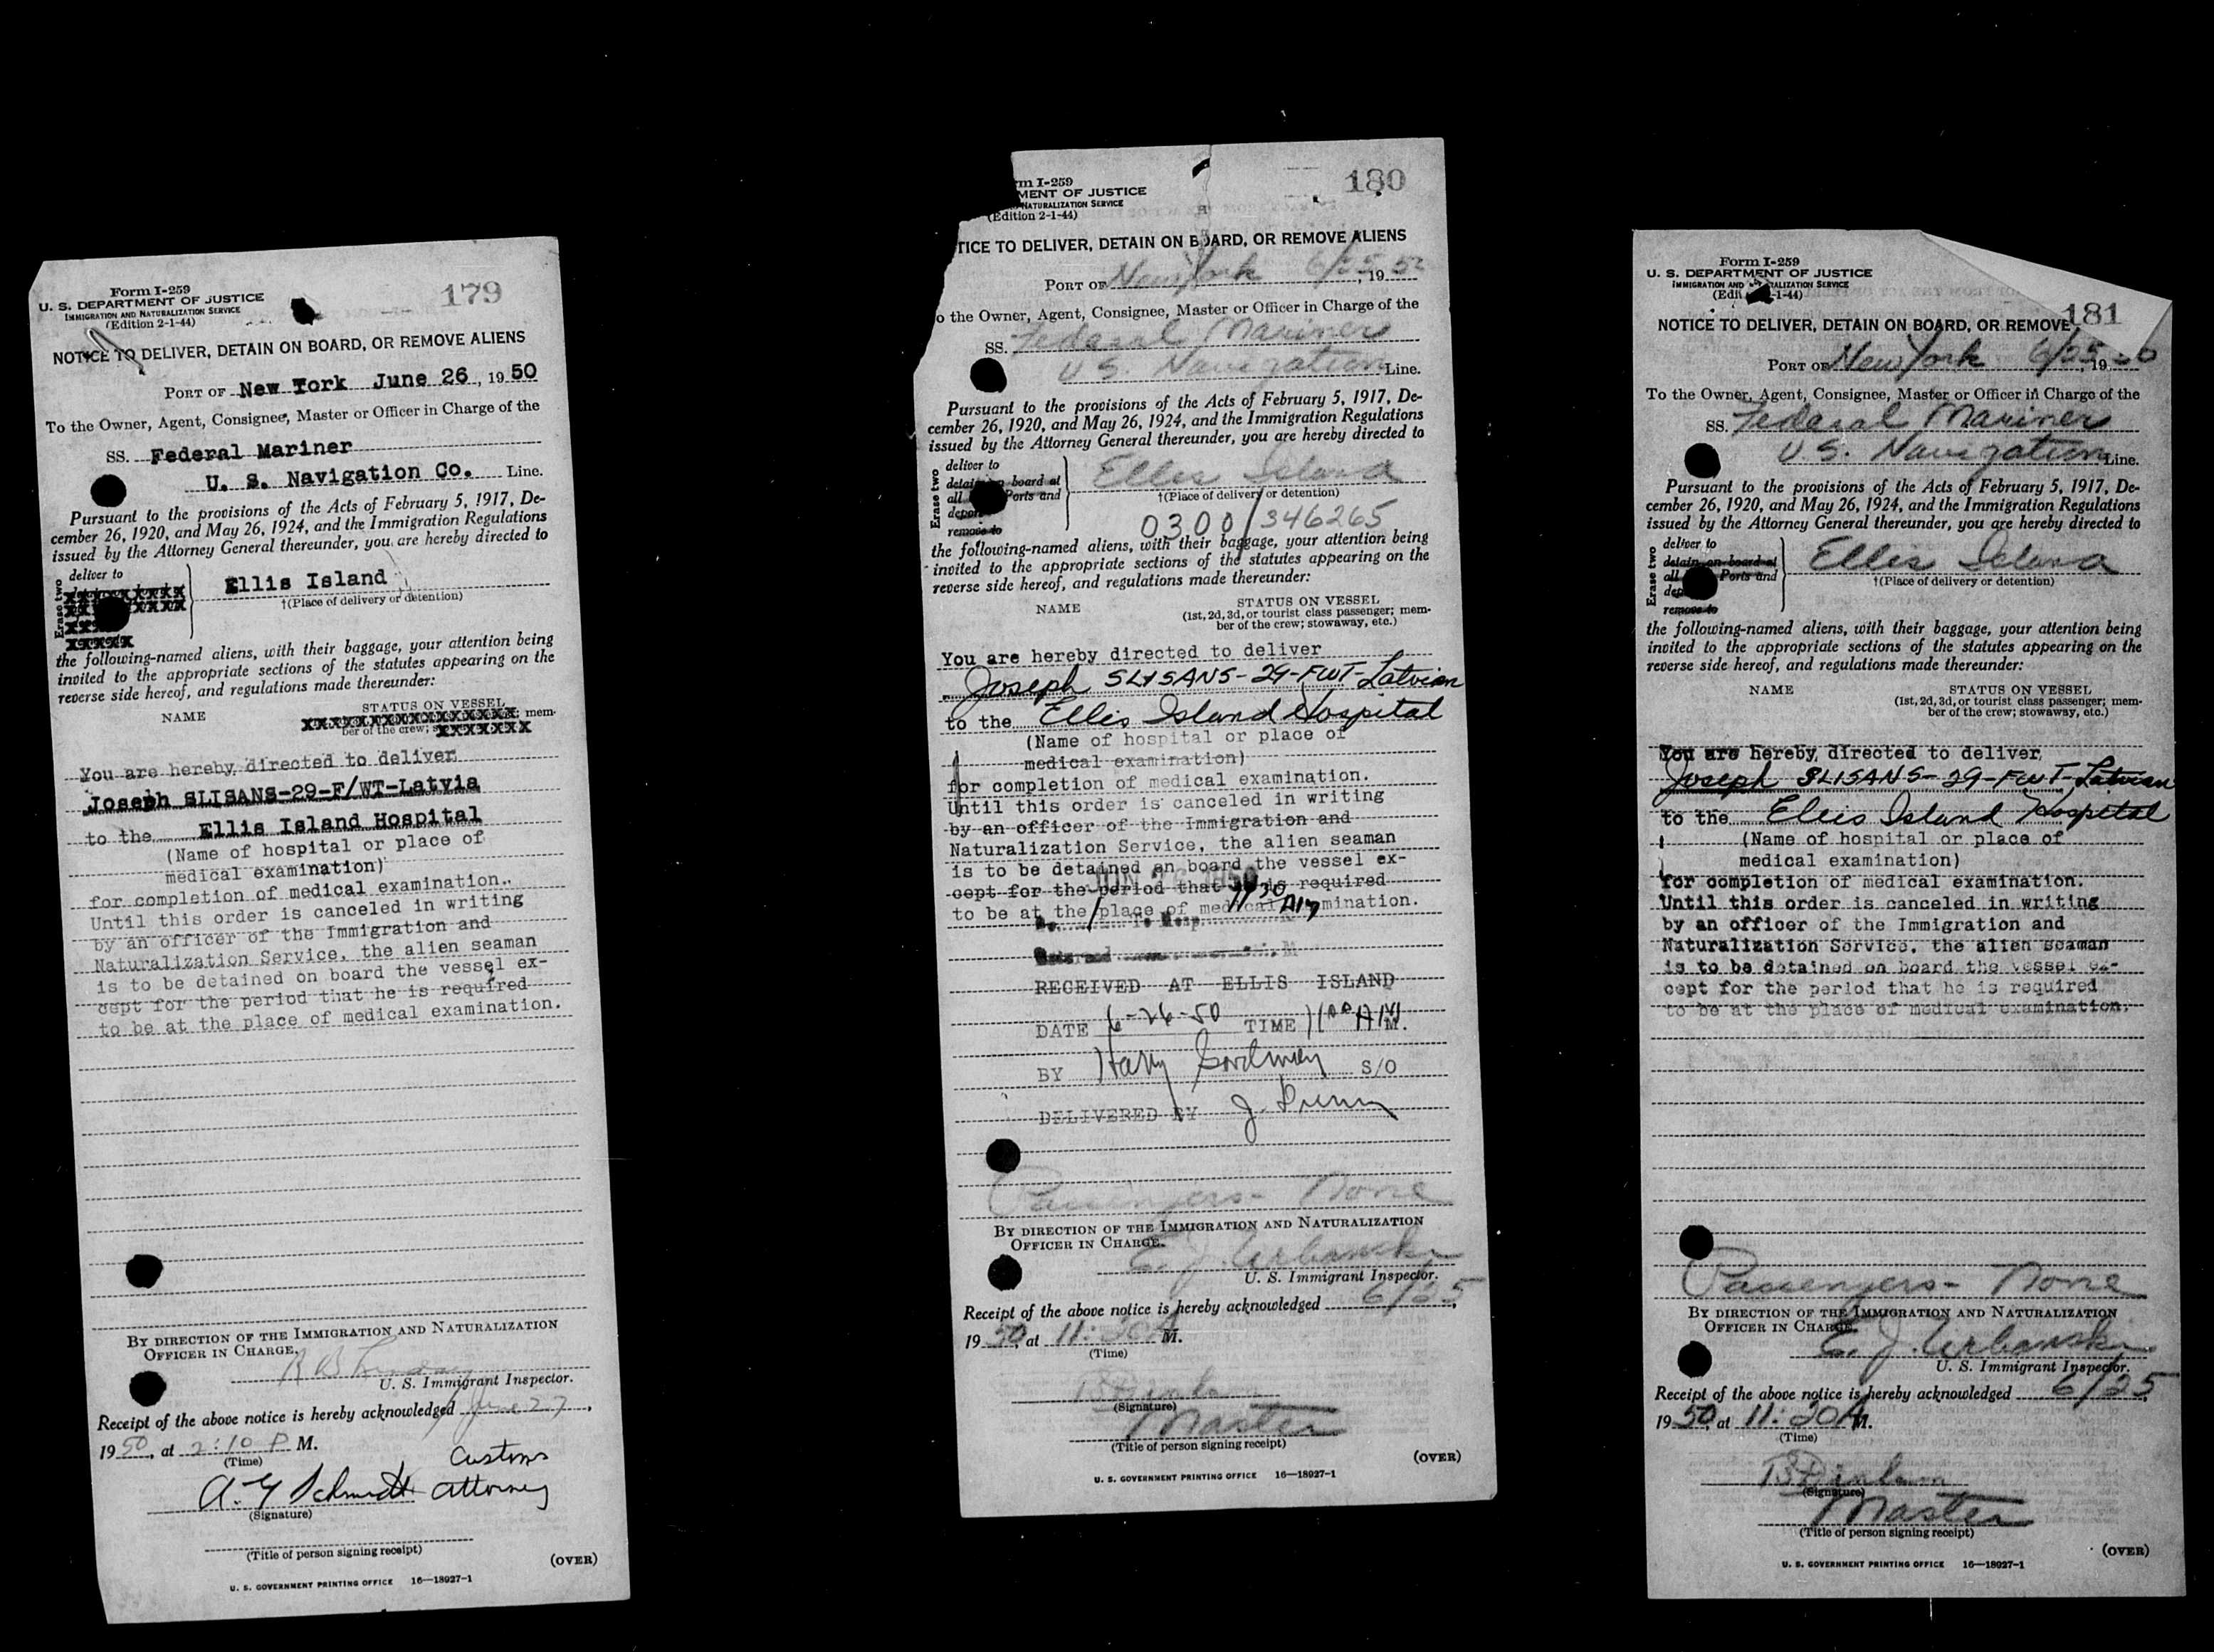 Form I-259
U. S. DEPARTMENT OF JUSTICE
IMMIGRATION AND NATURALIZATION SERVICE
(Edition 2-1-44)
179
NOTICE TO DELIVER, DETAIN ON BOARD, OR REMOVE ALIENS
PORT OF New York June 26, 1950
To the Owner, Agent, Consignee, Master or Officer in Charge of the
SS. Federal Mariner
U. S. Navigation Co. Line.
Pursuant to the provisions of the Acts of February 5, 1917, De-
cember 26, 1920, and May 26, 1924, and the Immigration Regulations
issued by the Attorney General thereunder, you are hereby directed to
Erase two
deliver to
Ellis Island
†(Place of delivery or detention)
the following-named aliens, with their baggage, your attention being
invited to the appropriate sections of the statutes appearing on the
reverse side hereof, and regulations made thereunder:
NAME STATUS ON VESSEL
XXXXXXXXXXXXXXXXXX; mem-
ber of the crew; XXXXXXX
You are hereby directed to deliver
Joseph SLISANS-29-F/WT-Latvia
to the Ellis Island Hospital
(Name of hospital or place of
medical examination)
for completion of medical examination.
Until this order is canceled in writing
by an officer of the Immigration and
Naturalization Service, the alien seaman
is to be detained on board the vessel ex-
cept for the period that he is required
to be at the place of medical examination.
BY DIRECTION OF THE IMMIGRATION AND NATURALIZATION
OFFICER IN CHARGE.
U. S. Immigrant Inspector.
Receipt of the above notice is hereby acknowledged June 27,
1950, at 2:10 P M.
(Time)
Customs
A. Y Schmidt attorney
(Signature)
(Title of person signing receipt)
(OVER)
U. S. GOVERNMENT PRINTING OFFICE 16—18927-1
rm I-259
MENT OF JUSTICE
NATURALIZATION SERVICE
(Edition 2-1-44)
180
TICE TO DELIVER, DETAIN ON BOARD, OR REMOVE ALIENS
PORT OF New York 6/25, 1950
o the Owner, Agent, Consignee, Master or Officer in Charge of the
SS. Federal Mariner
U S Navigation Line.
Pursuant to the provisions of the Acts of February 5, 1917, De-
cember 26, 1920, and May 26, 1924, and the Immigration Regulations
issued by the Attorney General thereunder, you are hereby directed to
Erase two
deliver to
detain on board at
all Ports and
deport
remove to
Ellis Island
†(Place of delivery or detention)
0300/346265
the following-named aliens, with their baggage, your attention being
invited to the appropriate sections of the statutes appearing on the
reverse side hereof, and regulations made thereunder:
NAME STATUS ON VESSEL
(1st, 2d, 3d, or tourist class passenger; mem-
ber of the crew; stowaway, etc.)
You are hereby directed to deliver
Joseph SLISANS-29-FWT-Latvian
to the Ellis Island Hospital
(Name of hospital or place of
medical examination)
for completion of medical examination.
Until this order is canceled in writing
by an officer of the Immigration and
Naturalization Service, the alien seaman
is to be detained on board the vessel ex-
cept for the period that he is required
to be at the place of medical examination.
JUN 26 1950
1130 AM
To Hosp.
RECEIVED AT ELLIS ISLAND
DATE 6-26-50 TIME 11 00 AM.
BY Harry Goodman S/O
DELIVERED BY J.
Passengers - None
BY DIRECTION OF THE IMMIGRATION AND NATURALIZATION
OFFICER IN CHARGE.
E. J. Urbanski
U. S. Immigrant Inspector.
Receipt of the above notice is hereby acknowledged 6/25,
1950, at 11:30 A M.
(Time)
(Signature)
Master
(Title of person signing receipt)
(OVER)
U. S. GOVERNMENT PRINTING OFFICE 16—18927-1
Form I-259
U. S. DEPARTMENT OF JUSTICE
IMMIGRATION AND NATURALIZATION SERVICE
(Edi -1-44)
181
NOTICE TO DELIVER, DETAIN ON BOARD, OR REMOVE
PORT OF New York 6/25, 1950
To the Owner, Agent, Consignee, Master or Officer in Charge of the
SS. Federal Mariner
U.S. Navigation Line.
Pursuant to the provisions of the Acts of February 5, 1917, De-
cember 26, 1920, and May 26, 1924, and the Immigration Regulations
issued by the Attorney General thereunder, you are hereby directed to
Erase two
deliver to
detain on board at
all Ports and
dep
remove to
Ellis Island
†(Place of delivery or detention)
the following-named aliens, with their baggage, your attention being
invited to the appropriate sections of the statutes appearing on the
reverse side hereof, and regulations made thereunder:
NAME STATUS ON VESSEL
(1st, 2d, 3d, or tourist class passenger; mem-
ber of the crew; stowaway, etc.)
You are hereby directed to deliver
Joseph SLISANS-29-FWT-Latvian
to the Ellis Island Hospital
(Name of hospital or place of
medical examination)
for completion of medical examination.
Until this order is canceled in writing
by an officer of the Immigration and
Naturalization Service, the alien seaman
is to be detained on board the vessel ex-
cept for the period that he is required
to be at the place of medical examination.
Passengers - None
BY DIRECTION OF THE IMMIGRATION AND NATURALIZATION
OFFICER IN CHARGE.
E. J. Urbanski
U. S. Immigrant Inspector.
Receipt of the above notice is hereby acknowledged 6/25,
1950, at 11:30 A M.
(Time)
(Signature)
Master
(Title of person signing receipt)
(OVER)
U. S. GOVERNMENT PRINTING OFFICE 16—18927-1